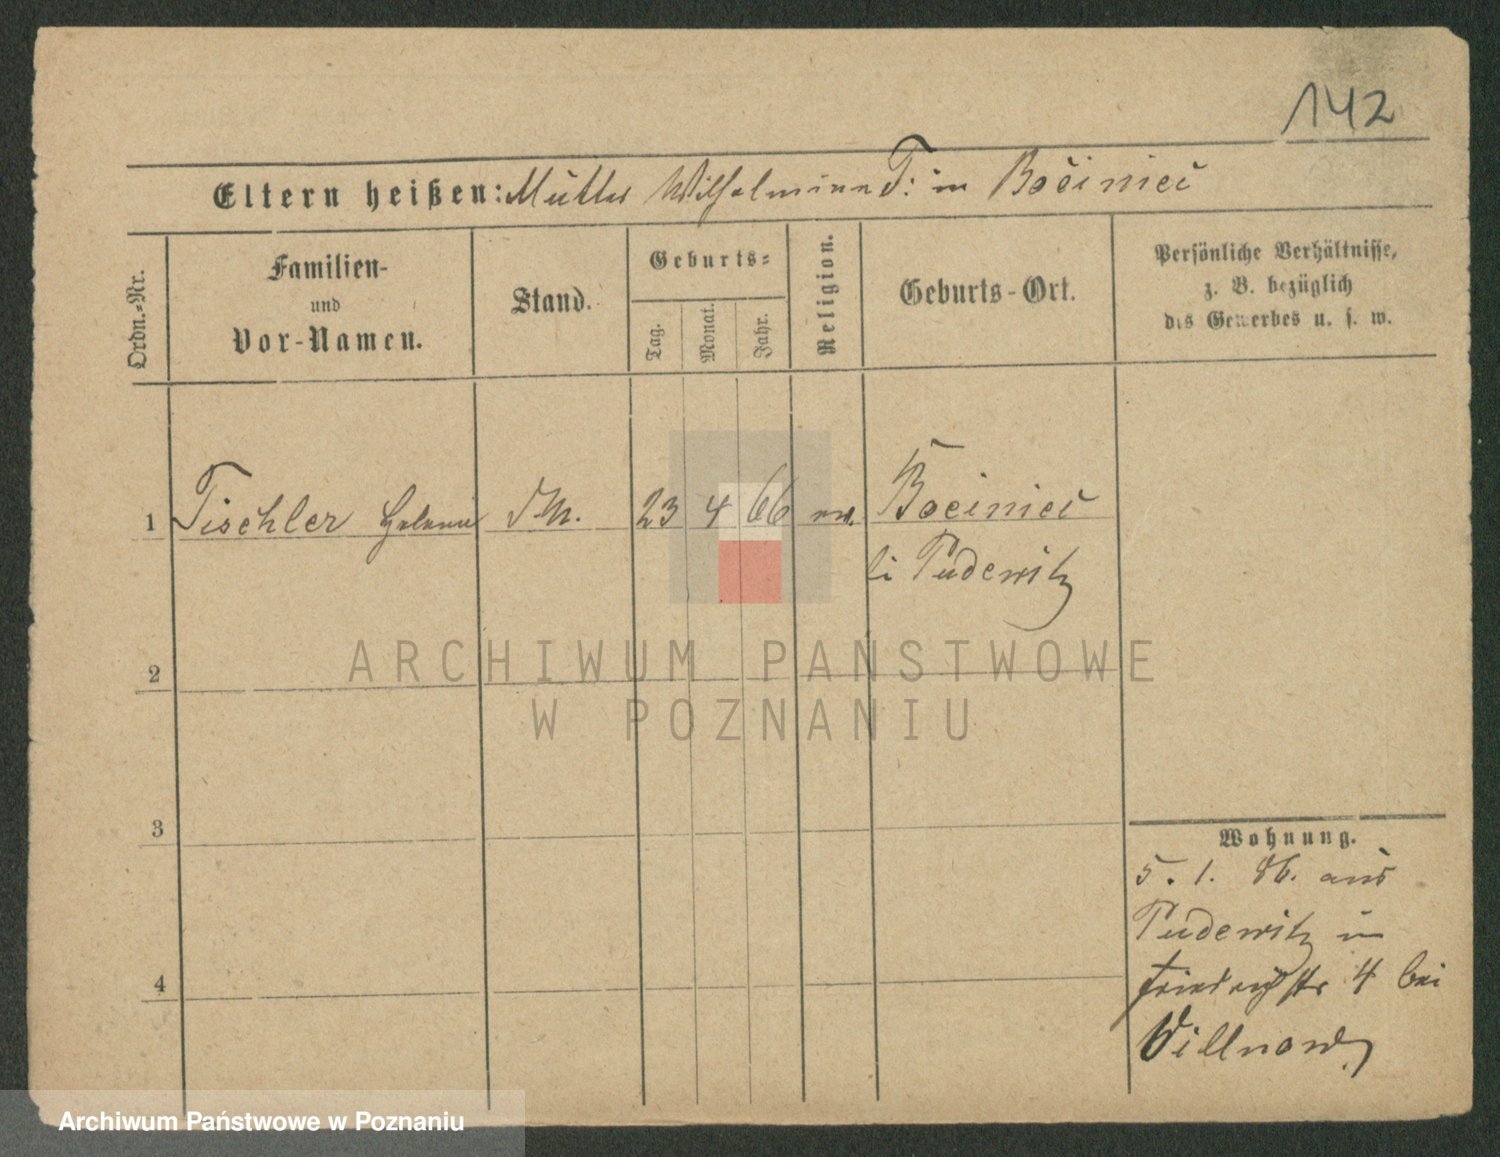 142
Eltern heißen: Mutter Wilhelmine T: in Bociniec
Ordn.-Nr.
Familien-
und
Vor-Namen.
Stand.
Geburts-
Tag.
Monat.
Jahr.
Religion.
Geburts-Ort.
Persönliche Verhältnisse,
z. B. bezüglich
des Gewerbes u. s. w.
1 Tischler 23 4 66 Bociniec
Pudewitz
2
3
4
Wohnung.
5. 1. 86. aus
Pudewitz in
Friedrichstr 4 bei
Willnow
ARCHIWUM PAŃSTWOWE
W POZNANIU
Archiwum Państwowe w Poznaniu